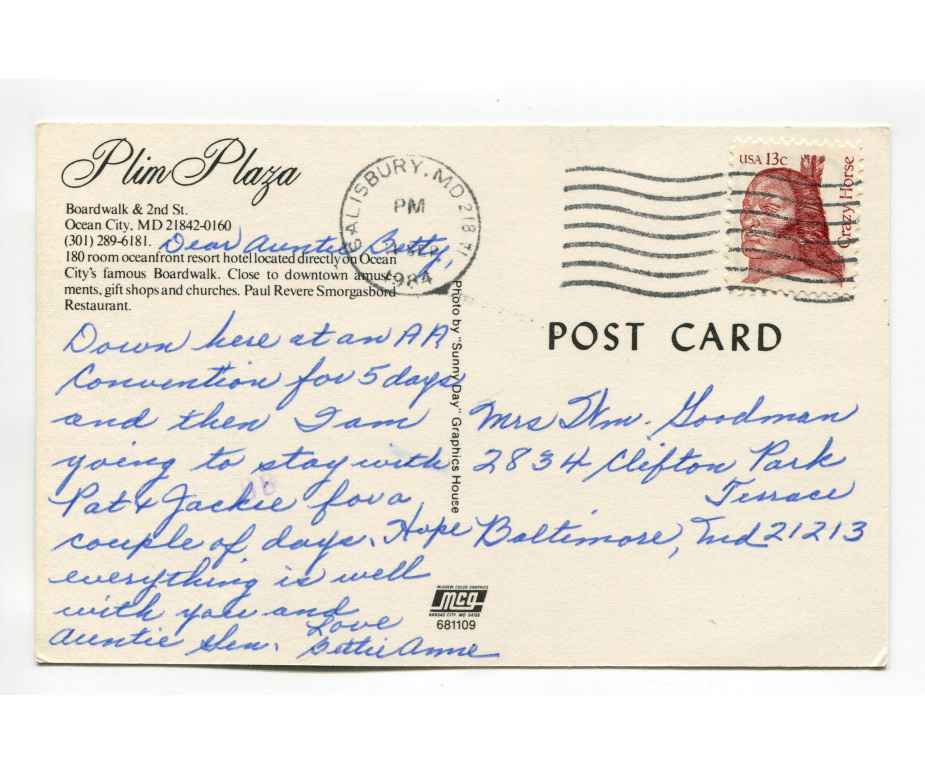 Plim Plaza
Boardwalk & 2nd St.
Ocean City, MD 21842-0160
(301) 289-6181.
180 room oceanfront resort hotel located directly on Ocean
City's famous Boardwalk. Close to downtown amuse-
ments, gift shops and churches. Paul Revere Smorgasbord
Restaurant.
Dear Auntie Betty,
Down here at an AA
Convention for 5 days
and then I am
going to stay with
Pat & Jackie for a
couple of days. Hope
everything is well
with you and
Auntie Gen.
Love
Bettie Anne
SALISBURY, MD 218
PM
1984
USA 13c
Crazy Horse
POST CARD
Photo by "Sunny Day" Graphics House
Mrs Wm. Goodman
2834 Clifton Park
Terrace
Baltimore, Md 21213
McGREW COLOR GRAPHICS
mcg
KANSAS CITY, MO 64108
681109